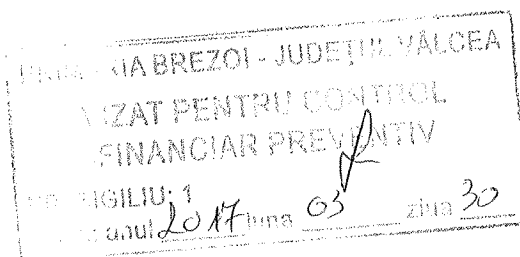 PRIMĂRIA BREZOI - JUDEŢUL VÂLCEA
VIZAT PENTRU CONTROL
FINANCIAR PREVENTIV
SIGILIU: 1
anul 2017 luna 03 ziua 30